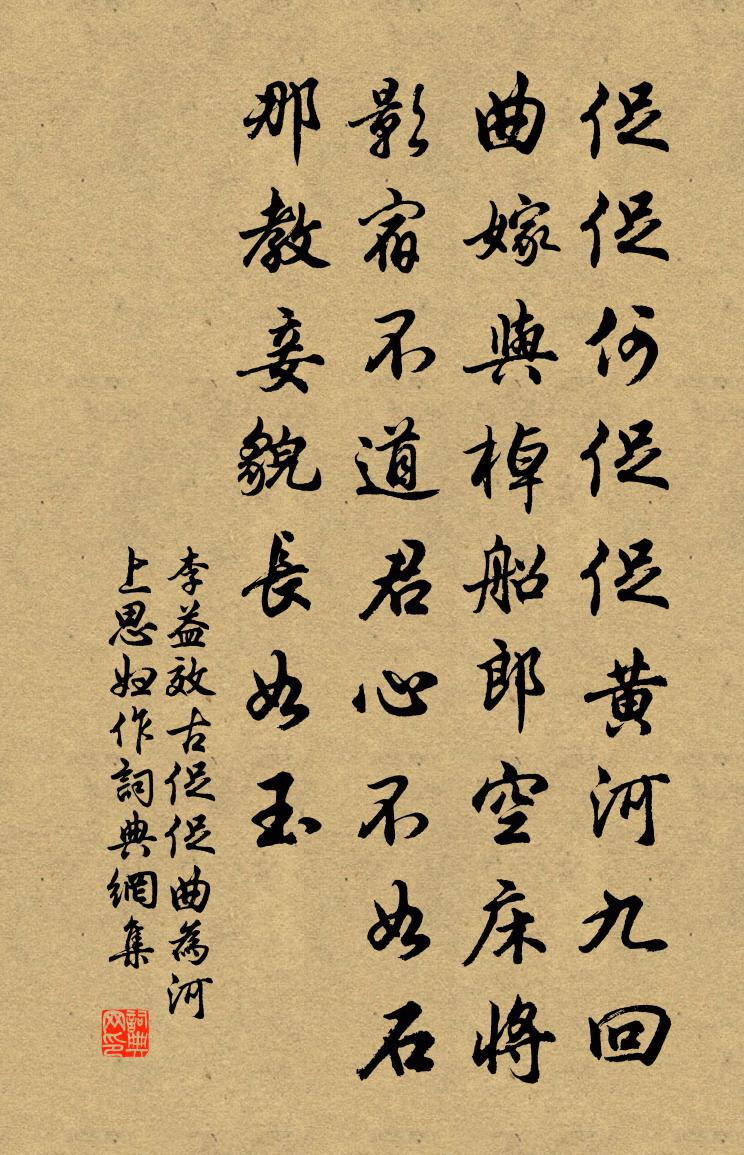 促促何促促黄河九回
曲嫁與棹船郎空床將
影宿不道君心不如石
那教妾貌長如玉
李益效古促促曲為河
上思婦作詞典網集
詞典
网印